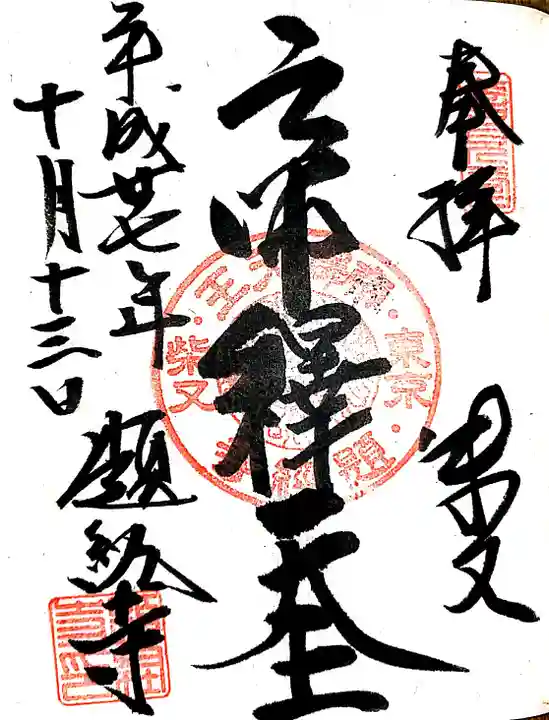 奉拝
柴又
帝釋天王
平成廿七年
十月十三日
題経寺
東京
柴又